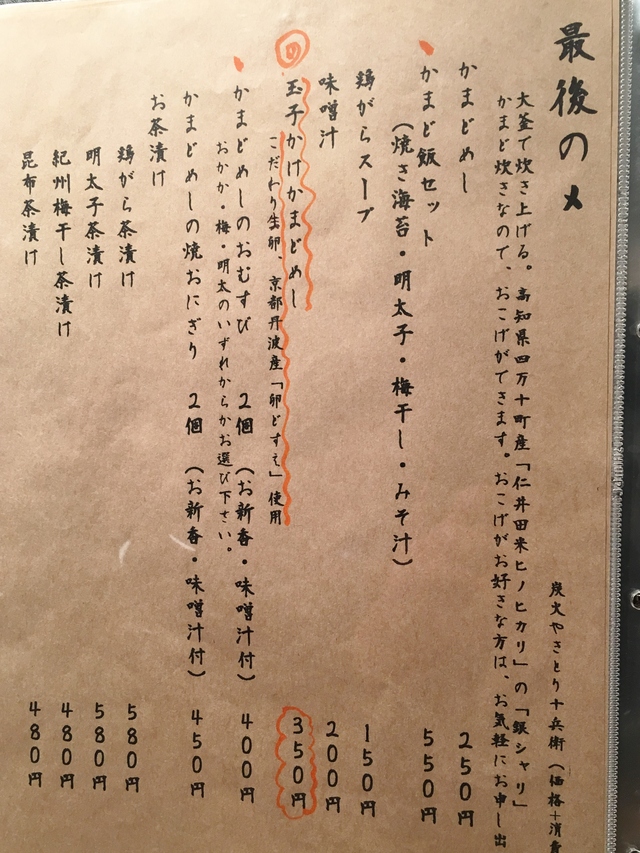 最後の〆
炭火やきとり十兵衛（価格＋消費
大釜で炊き上げる。高知県四万十町産「仁井田米ヒノヒカリ」の「銀シャリ」
かまど炊きなので、おこげができます。おこげがお好きな方は、お気軽にお申し出
かまどめし 250円
かまど飯セット 550円
（焼き海苔・明太子・梅干し・みそ汁）
鶏がらスープ 150円
味噌汁 200円
の 玉子かけかまどめし 350円
こだわり生卵、京都丹波産「卵どすえ」使用
かまどめしのおむすび 2個 （お新香・味噌汁付） 400円
おかか・梅・明太のいずれからかお選び下さい。
かまどめしの焼おにぎり 2個 （お新香・味噌汁付） 450円
お茶漬け
鶏がら茶漬け 580円
明太子茶漬け 580円
紀州梅干し茶漬け 480円
昆布茶漬け 480円